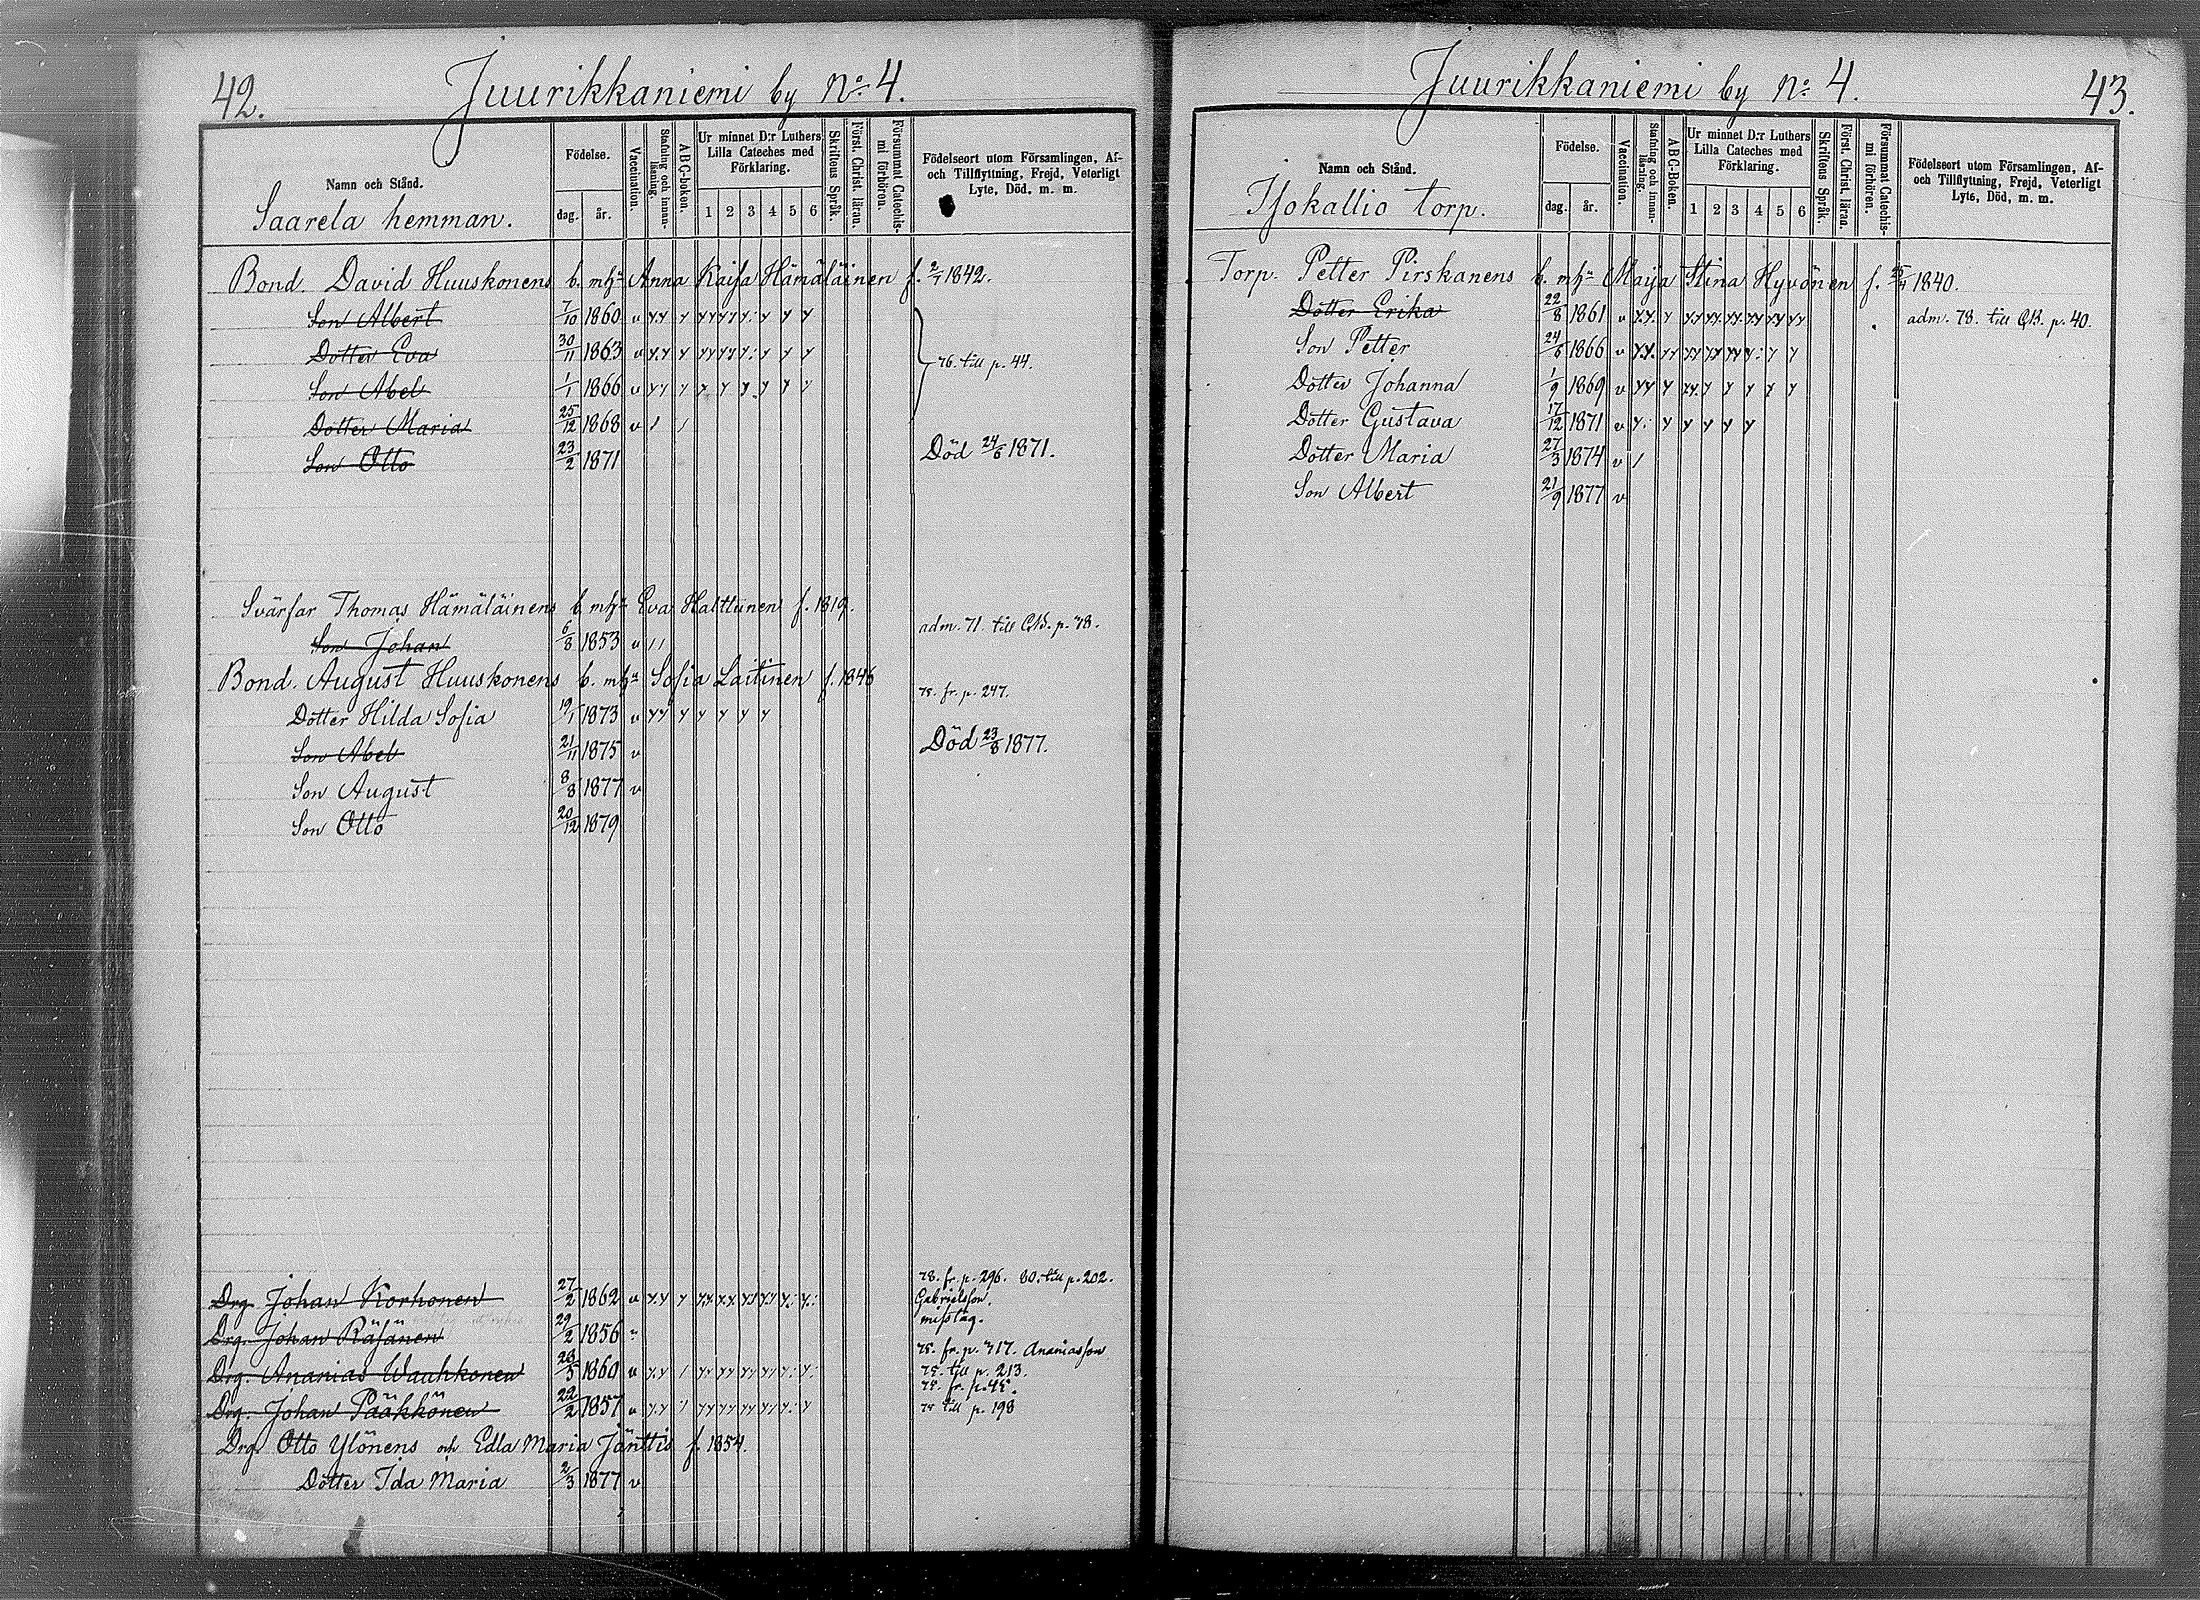 42.
Juurikkaniemi by No 4.
Namn och Stånd.
Saarela hemman.
Födelse.
dag. år.
Vaccination.
Stafning och innanläsning.
A B C-boken.
Ur minnet D:r Luthers Lilla Cateches med Förklaring.
1 2 3 4 5 6
Skriftens Språk.
Först. Christ. läran.
Försummat Catechismi förhören.
Födelseort utom Församlingen, Af- och Tillflyttning, Frejd, Veterligt Lyte, Död, m. m.
Bond. David Huuskonens b. m hu Anna Kaisa Hämäläinen f. 2/7 1842.
Son Albert 7/10 1860
Dotter Eva 30/11 1863
76. till p. 44.
Son Abel 1/1 1866
Dotter Maria 25/12 1868
Son Otto 23/2 1871 Död 24/6 1871.
Svärfar Thomas Hämäläinens b m hu Eva Halttunen f. 1819.
Son Johan 6/8 1853 v adm. 71. till p. 78.
Bond. August Huuskonens b. m hu Sofia Laitinen f. 1846
75. fr. p. 247.
Dotter Hilda Sofia 19/1 1873
Son Abel 21/11 1875 v Död 23/8 1877.
Son August 8/8 1877 v
Son Otto 20/12 1879
78. fr. p. 296. 80. till p. 202.
Drg. Johan Korhonen 27/2 1862 Gabrielsson.
misstag.
Drg. Johan Räsänen 29/2 1856
75. fr. p. 417. Ananiasson
Drg. Ananias Wauhkonen 1860 75. till p. 213.
74. fr. p. 45.
Drg. Johan Pääkkönen 22/2 1857 till p. 198
Drg. Otto Ylönens och Edla Maria Jänttis f. 1854.
Dotter Ida Maria 2/3 1877 v
Juurikkaniemi by No 4.
43.
Namn och Stånd.
Isokallio torp.
Födelse.
dag. år.
Vaccination.
Stafning och innanläsning.
A B C-Boken.
Ur minnet D:r Luthers Lilla Cateches med Förklaring.
1 2 3 4 5 6
Skriftens Språk.
Först. Christ. läran.
Försummat Catechismi förhören.
Födelseort utom Församlingen, Af- och Tillflyttning, Frejd, Veterligt Lyte, Död, m. m.
Torp. Petter Pirskanens b. m hu Maija Stina Hyvönen f. 25/4 1840.
Dotter Erika 22/8 1861 adm. 78. till p. 40.
Son Petter 24/6 1866
Dotter Johanna 1/9 1869
Dotter Gustava 17/12 1871
Dotter Maria 27/3 1874 v
Son Albert 21/9 1877 v